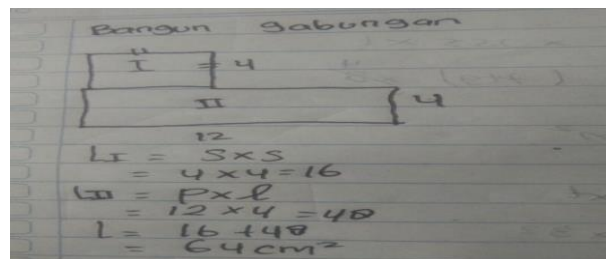 Bangun gabungan
4
I = 4
II 4
12
LI = S x S
= 4 x 4 = 16
LII = P x l
= 12 x 4 = 48
L = 16 + 48
= 64 cm²